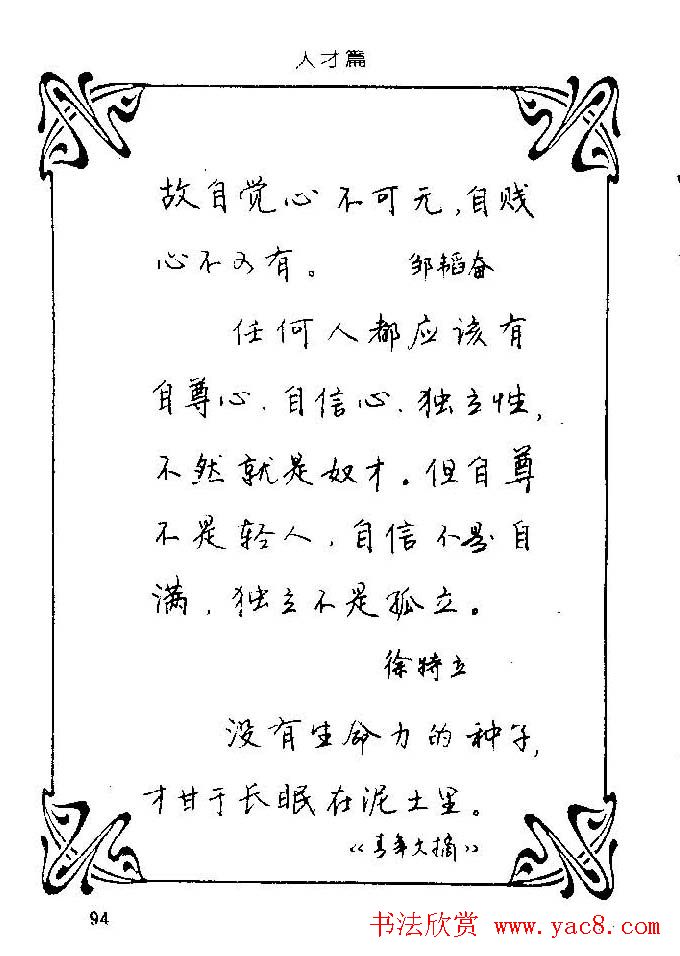 人才篇
故自觉心不可无,自贱
心不可有。 邹韬奋
任何人都应该有
自尊心、自信心、独立性,
不然就是奴才。但自尊
不是轻人,自信不是自
满,独立不是孤立。
徐特立
没有生命力的种子,
才甘于长眠在泥土里。
《青年文摘》
94
书法欣赏 www.yac8.com